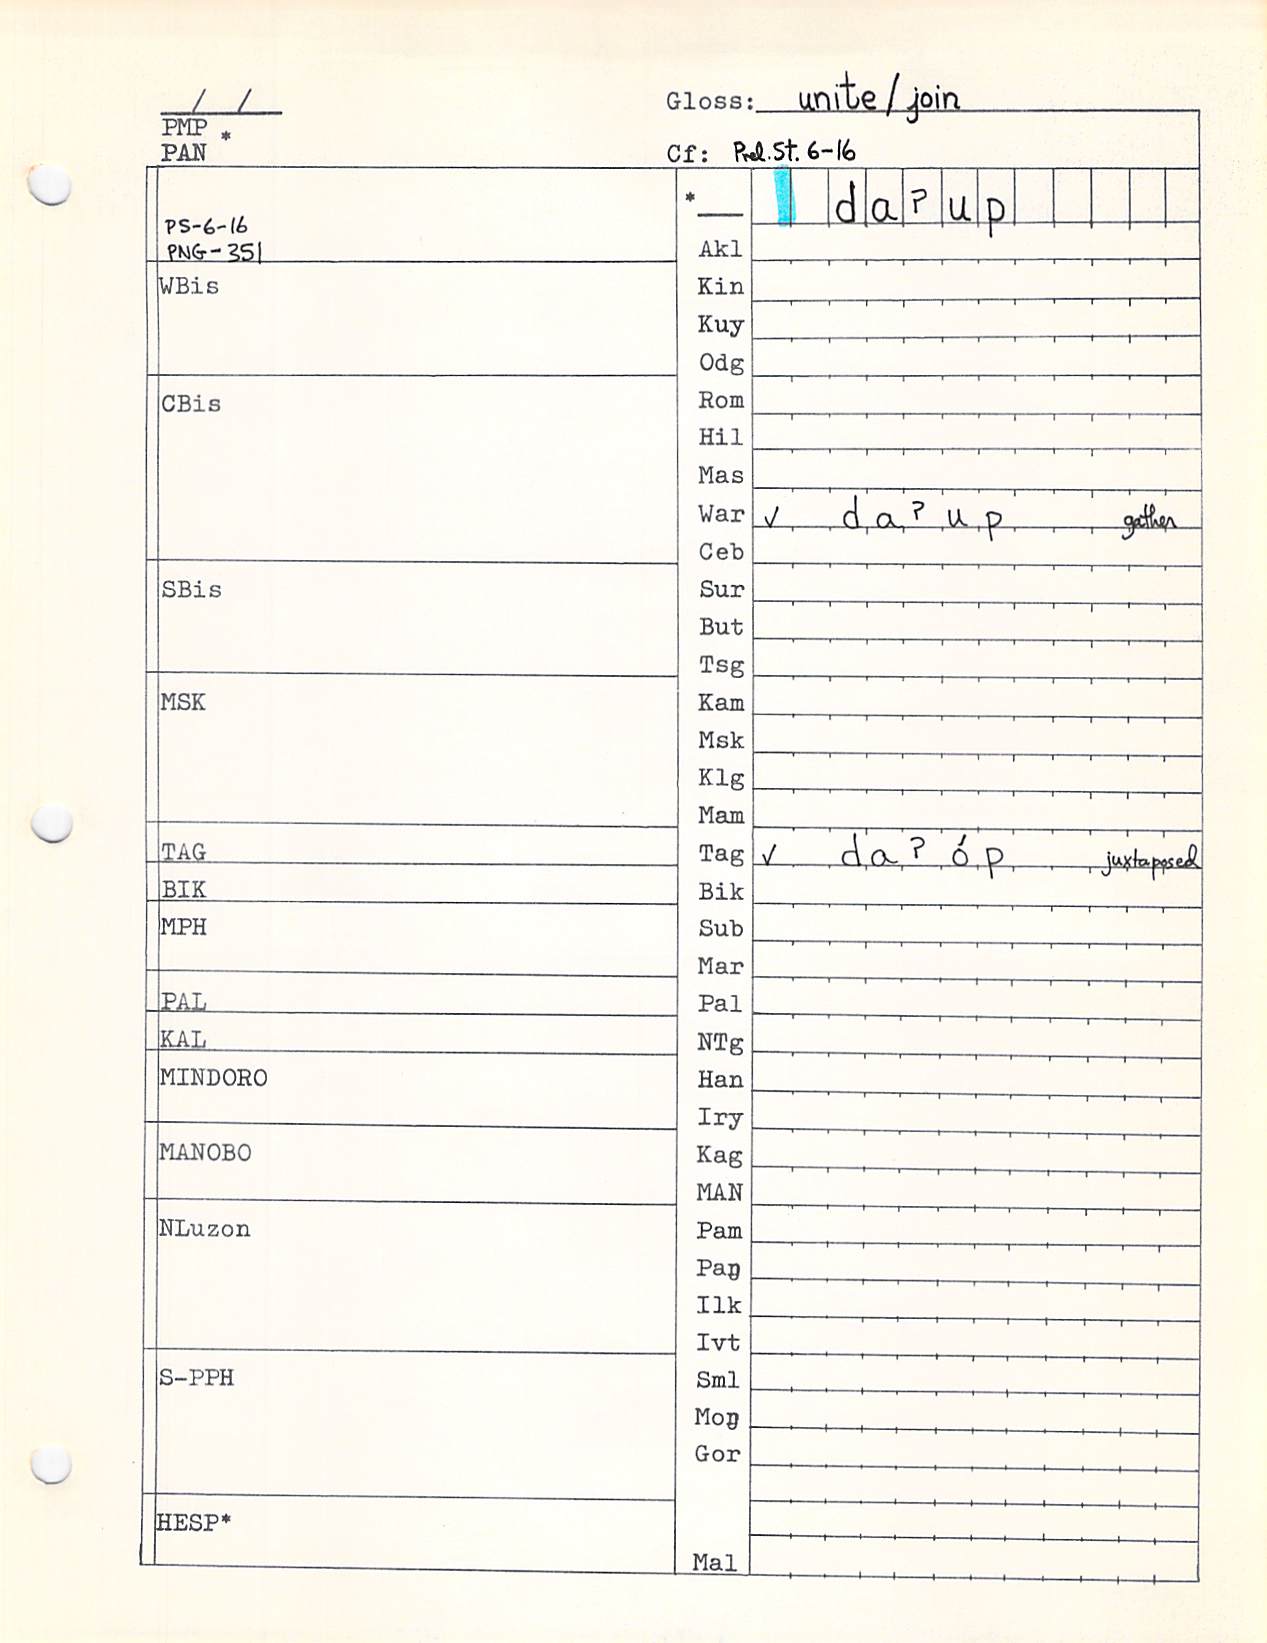 / /
Gloss: unite/join
PMP *
PAN
Cf: Prel. St. 6-16
PS-6-16
PNG-351
* da?up
Akl
WBis
Kin
Kuy
Odg
CBis
Rom
Hil
Mas
War ✓ da?up gather
Ceb
SBis
Sur
But
Tsg
MSK
Kam
Msk
Klg
Mam
TAG
Tag ✓ da?óp juxtaposed
BIK
Bik
MPH
Sub
Mar
PAL
Pal
KAL
NTg
MINDORO
Han
Iry
MANOBO
Kag
MAN
NLuzon
Pam
Paŋ
Ilk
Ivt
S-PPH
Sml
Moŋ
Gor
HESP*
Mal